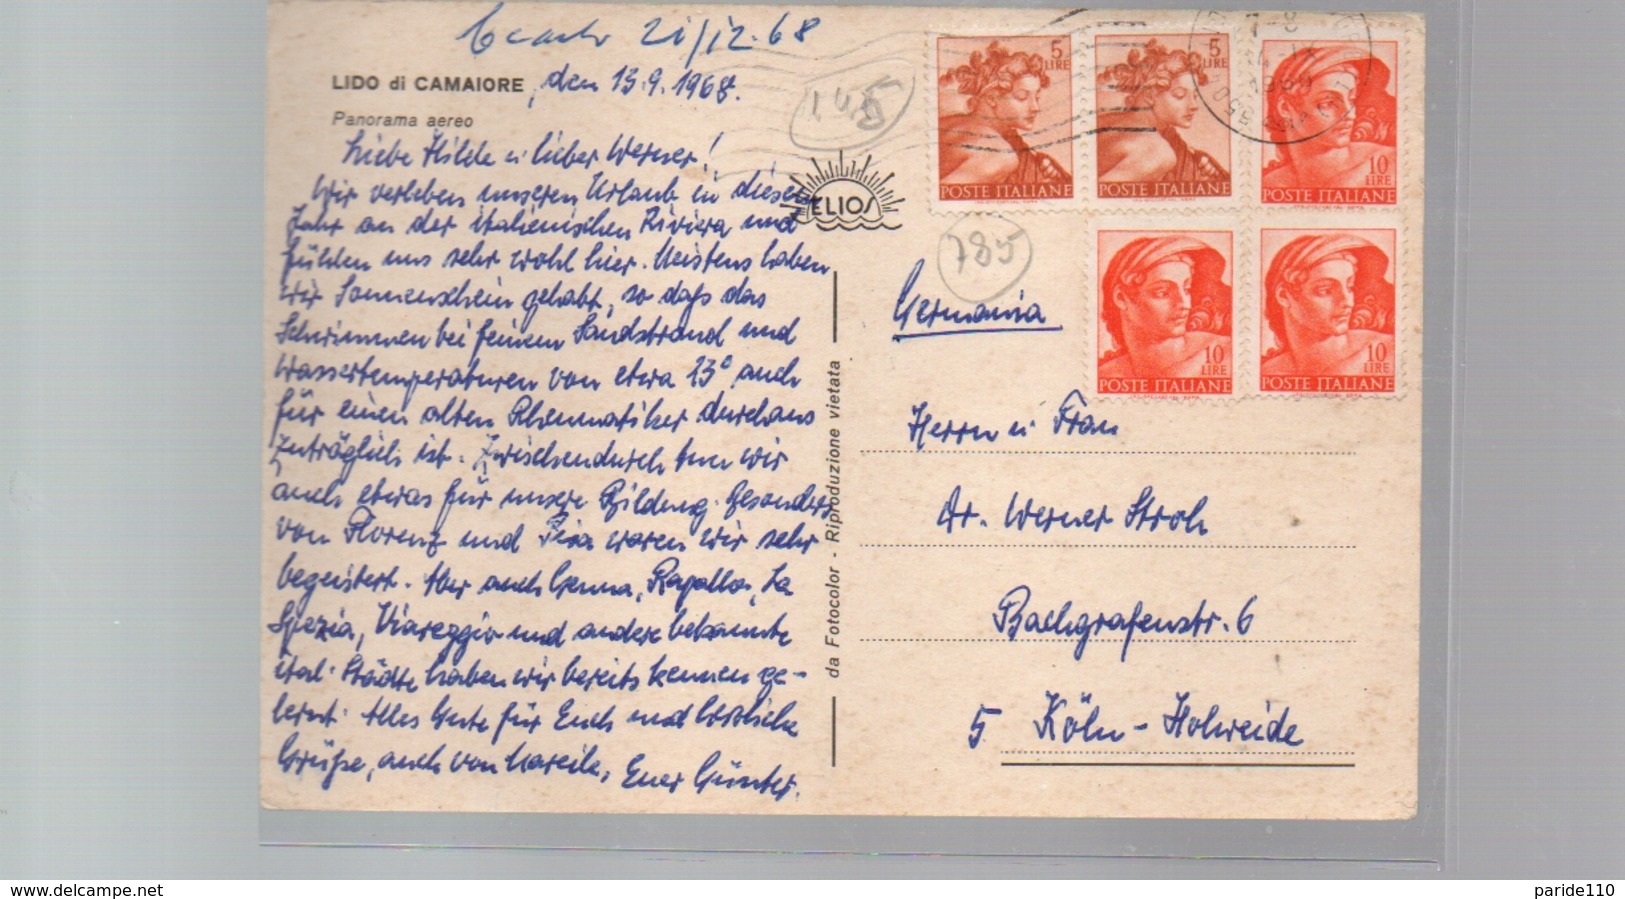 21/12.68
LIDO di CAMAIORE, den 13.9.1968.
Panorama aereo
Liebe Hilde u. lieber Werner!
Wir verleben unseren Urlaub in diesem
Jahr an der italienischen Riviera und
fühlen uns sehr wohl hier. Meistens haben
wir Sonnenschein gehabt, so daß das
Schwimmen bei feinem Sandstrand und
Wassertemperaturen von etwa 23° auch
für einen alten Rheumatiker durchaus
zuträglich ist. Zwischendurch tun wir
auch etwas für unsere Bildung. Besonders
von Florenz und Pisa waren wir sehr
begeistert. Aber auch Genua, Rapallo, La
Spezia, Viareggio und andere bekannte
ital. Städte haben wir bereits kennen ge-
lernt. Alles Gute für Euch und herzliche
Grüße, auch von Mareile, Euer Günter.
145
ELIOS
785
da Fotocolor - Riproduzione vietata
5 LIRE
POSTE ITALIANE
5 LIRE
POSTE ITALIANE
10 LIRE
POSTE ITALIANE
10 LIRE
POSTE ITALIANE
10 LIRE
POSTE ITALIANE
7-8
Germania
Herrn u. Frau
Dr. Werner Stroh
Bachgrafenstr. 6
5 Köln-Holweide
www.delcampe.net
paride110